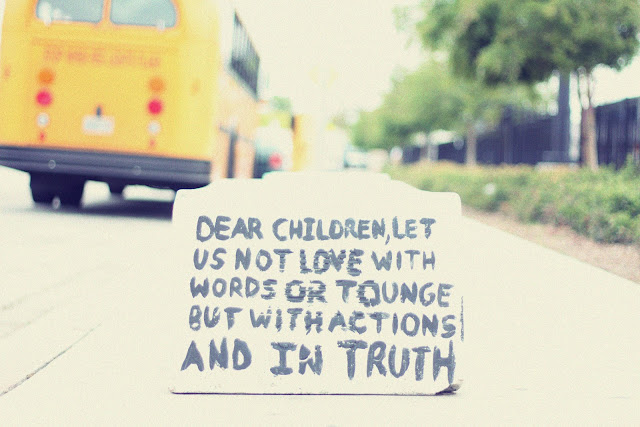 DEAR CHILDREN, LET
US NOT LOVE WITH
WORDS OR TOUNGE
BUT WITH ACTIONS
AND IN TRUTH